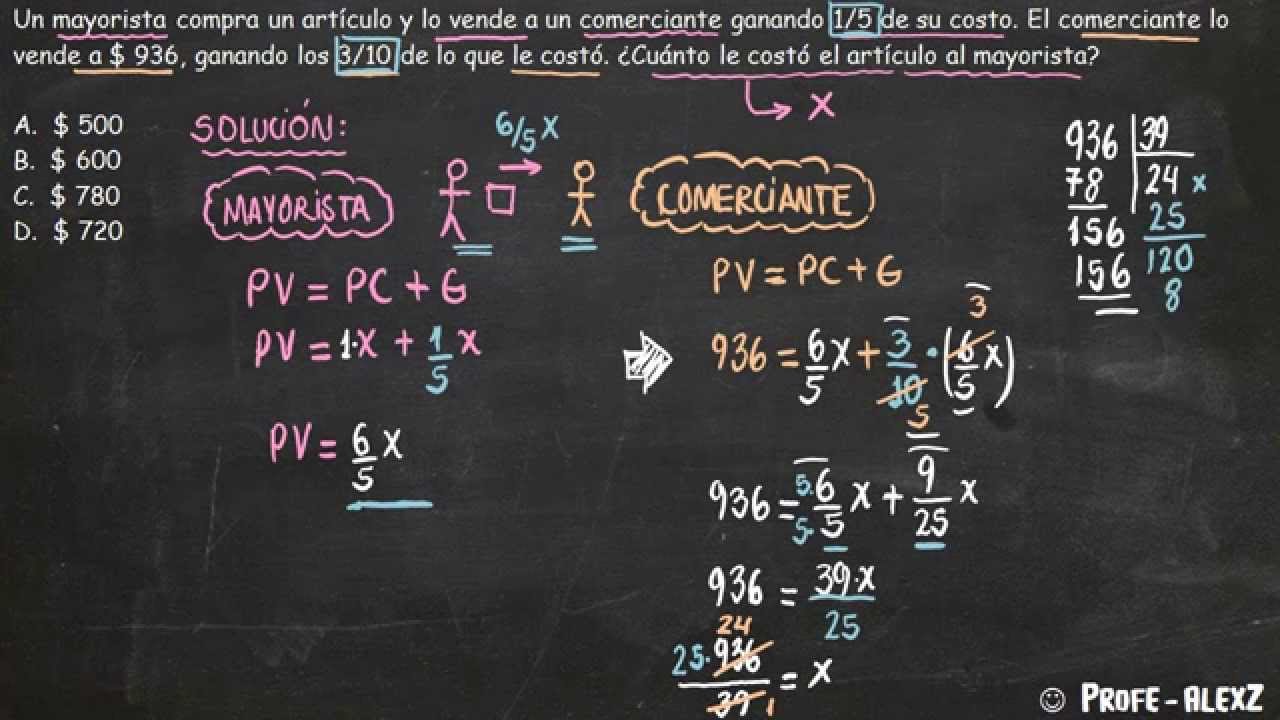 Un mayorista compra un artículo y lo vende a un comerciante ganando 1/5 de su costo. El comerciante lo
vende a $ 936, ganando los 3/10 de lo que le costó. ¿Cuánto le costó el artículo al mayorista?
x
A. $ 500
B. $ 600
C. $ 780
D. $ 720
SOLUCIÓN:
MAYORISTA
6/5 x
COMERCIANTE
PV = PC + G
PV = 1·x + 1/5 x
PV = 6/5 x
PV = PC + G
936 = 6/5 x + 3/10 · (6/5 x)
3
5
936 = 5·6/5·5 x + 9/25 x
936 = 39·x/25
24
25·936/39 = x
1
936 | 39
78 | 24 x
156 25
156 120
8
☺ PROFE - ALEXZ